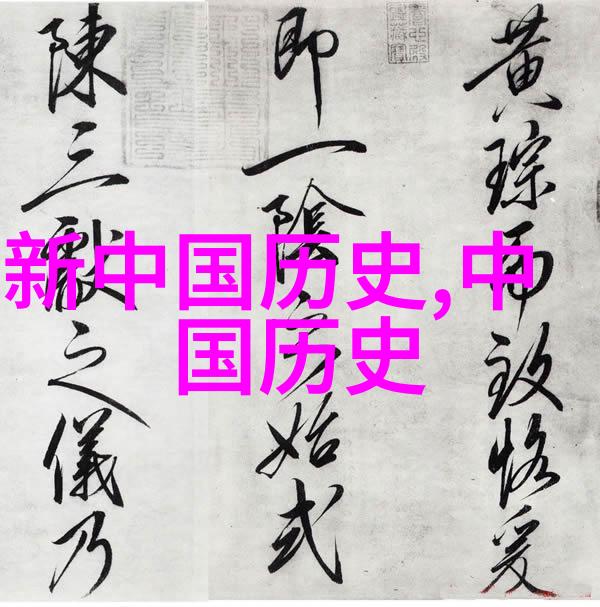 黄琮而致恪爰
即一陰始式
陳三獻之儀乃
新中国历史,中
国历史